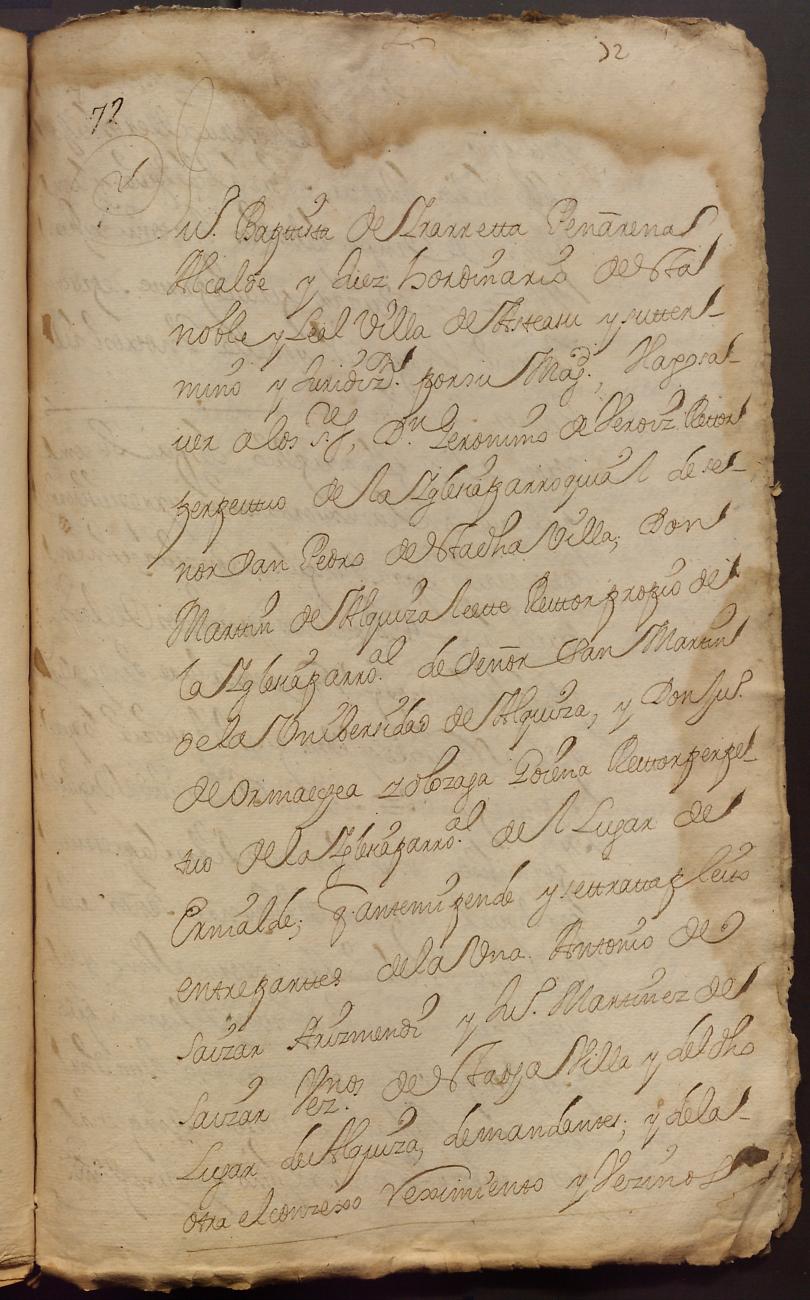 32
72
Ju.º Baptista de Yrarretta Penãrena
Alcalde y Juez hordinario de esta
noble y Leal Villa de Asteasu y su tter-
mino y Juridizⁿ. por su Magᵈ., Hago sa-
uer a los s.ʳᵉˢ, Dⁿ Geronimo de Verdiz Rettor
perpettuo de la Yglesia parroquial de se-
nor San Pedro de esta dha Villa, Don
Martin de Alquiza Rettor propio de
la Yglesia parroᵃˡ. de Señor San Martin
de la Unibersidad de Alquiza, y Don Ju.º
de Ormaegea y olozaga Rettor perpe-
tuo de la Yglesia parroᵃˡ. del Lugar de
Ernialde; q. ante mi pende y se tratta pleito
entre partes de la Una Antonio de
Saizar Arizmendi y Ju.º Martinez de
Saizar Vez.ⁿᵒˢ de esta dha Villa y del dho
Lugar de Alquiza, demandantes; y de la
otra el conzejo rexximiento y Vezinos